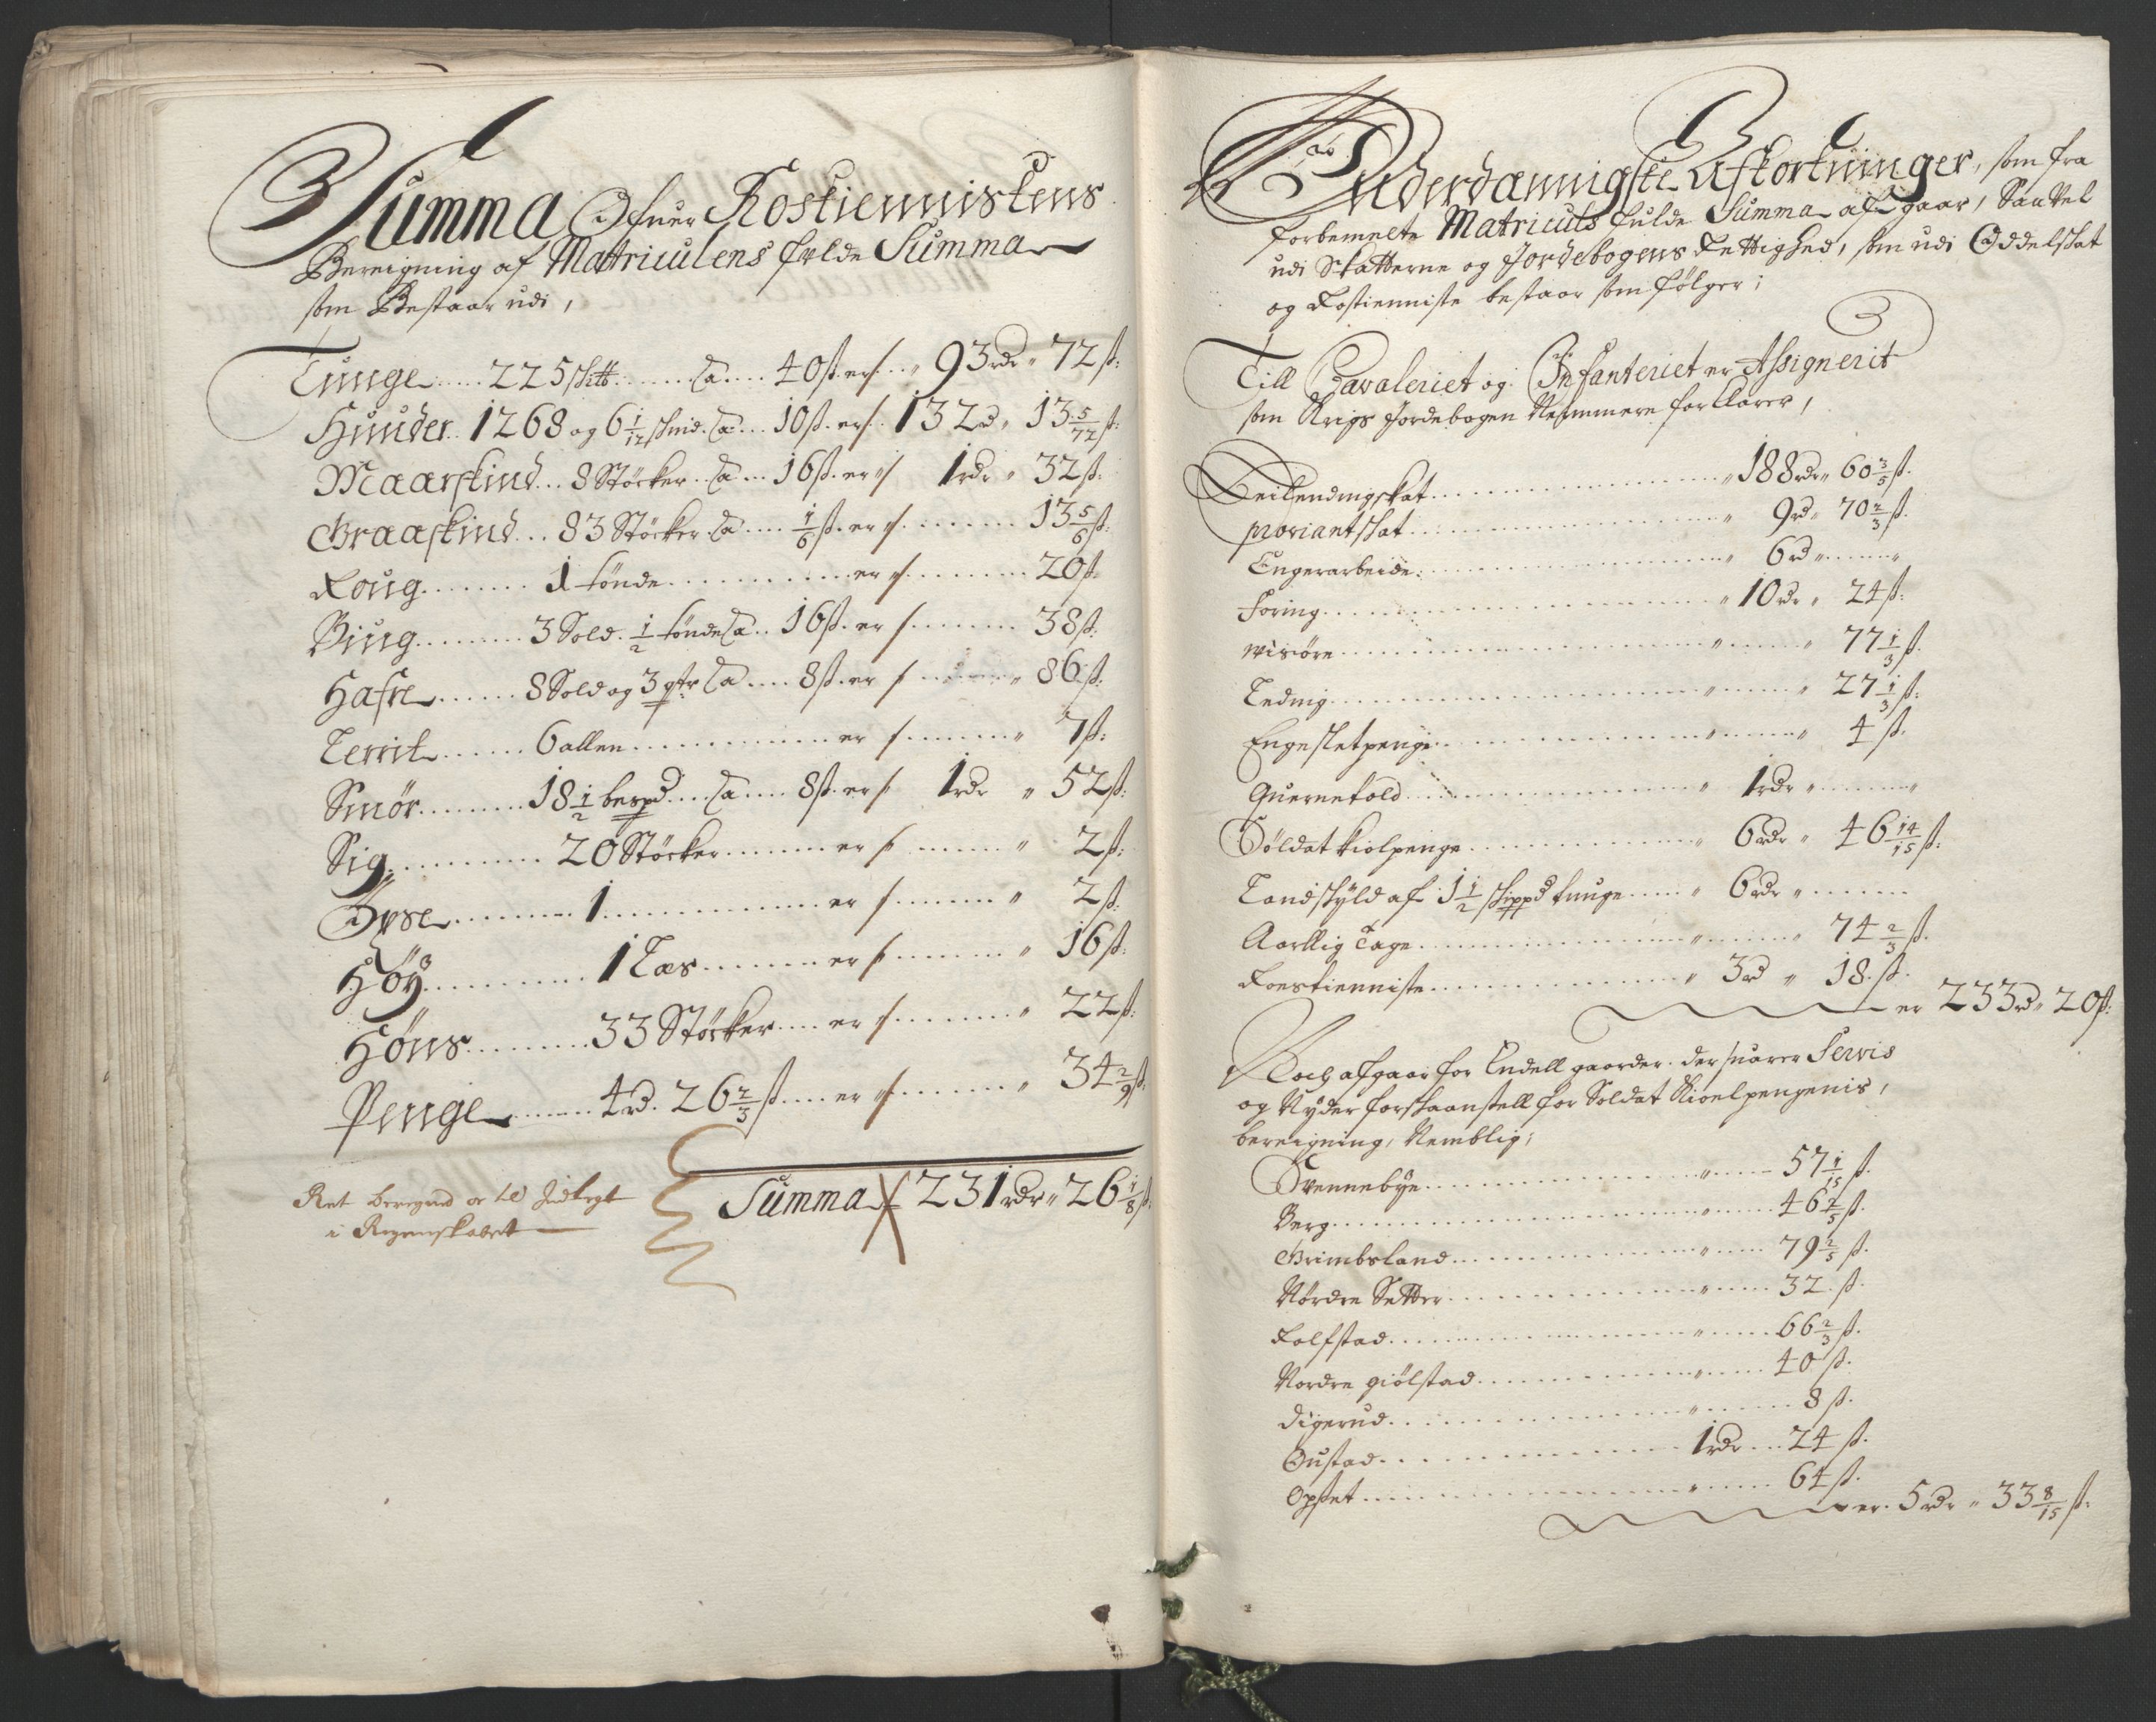 Summa Ofuer Rostiennistens
Bereigning af Matriculens fulde Summa
som Bestaar udi,
Tunge 225 skitt a 40 ß. er 93 rdr 72 ß:
Huuder 1268 og 6 1/12 skind a 10 ß. er 132 rd 13 5/72 ß:
Maarskind 8 Støcker a 16 ß. er 1 rdr 32 ß:
Graaskind 83 Støcker a 1/6 ß. er 13 5/6 ß:
Roug 1 tønde er 20 ß:
Biug 3 Sold. 1/2 tønde a 16 ß. er 38 ß:
Hafre 8 Sold og 3 qtr a 8 ß. er 86 ß:
Lerrit 6 allen er 7 ß:
Smør 18 1/2 bespd a 8 ß. er 1 rdr 52 ß:
Sig 20 Støcker er 2 ß:
Øxse 1 er 2 ß:
Høy 1 Læs er 16 ß:
Høns 33 Støcker er 22 ß:
Penge 4 rd. 26 2/3 ß er 34 2/9 ß:
Summa 231 rdr 26 1/8 ß:
Ret beregned og til Indtegt
i Regenskabet
Underdannigste Afkortninger, som fra
forbemelte Matriculs fulde Summa afgaar, Saavel
udi Skatterne og Jordebogens Rettighed, som udi Oddelskat
og Rostienniste bestaar som følger;
Till Cavaleriet og Infanteriet er Assignerit
som Krigs Jordebogen Nermmere forklarer,
Leilendingskat 188 rdr 60 3/5 ß.
proviantskat 9 rd 70 2/3 ß.
Engerarbeide 6 rd
Foring 10 rdr 24 ß:
visøre 77 1/3 ß.
Leding 27 1/3 ß:
Engesletpenge 4 ß.
Quernetold 1 rdr
Soldat kiolpenge 6 rdr 46 14/15 ß:
Landskyld af 1 1/2 skippd tunge 6 rdr
Aarllig Tage 74 2/3 ß.
Roestienniste 3 rd 18 ß.
er 233 rd 20 ß:
Noch afgaar for Endell gaarder der suarer Servis
og Nyder forskaanstell for Soldat Kioelpengenis,
bereigning, Nemblig;
Svennebye 57 1/15 ß.
Berg 46 2/5 ß.
Grimbsland 79 2/5 ß.
Nordre Setter 32 ß.
Rolfstad 66 2/3 ß.
Nordre giølstad 40 ß.
Digerud 8 ß.
Oustad 1 rdr 24 ß.
Opset 64 ß.
er 5 rdr 33 8/15 ß: